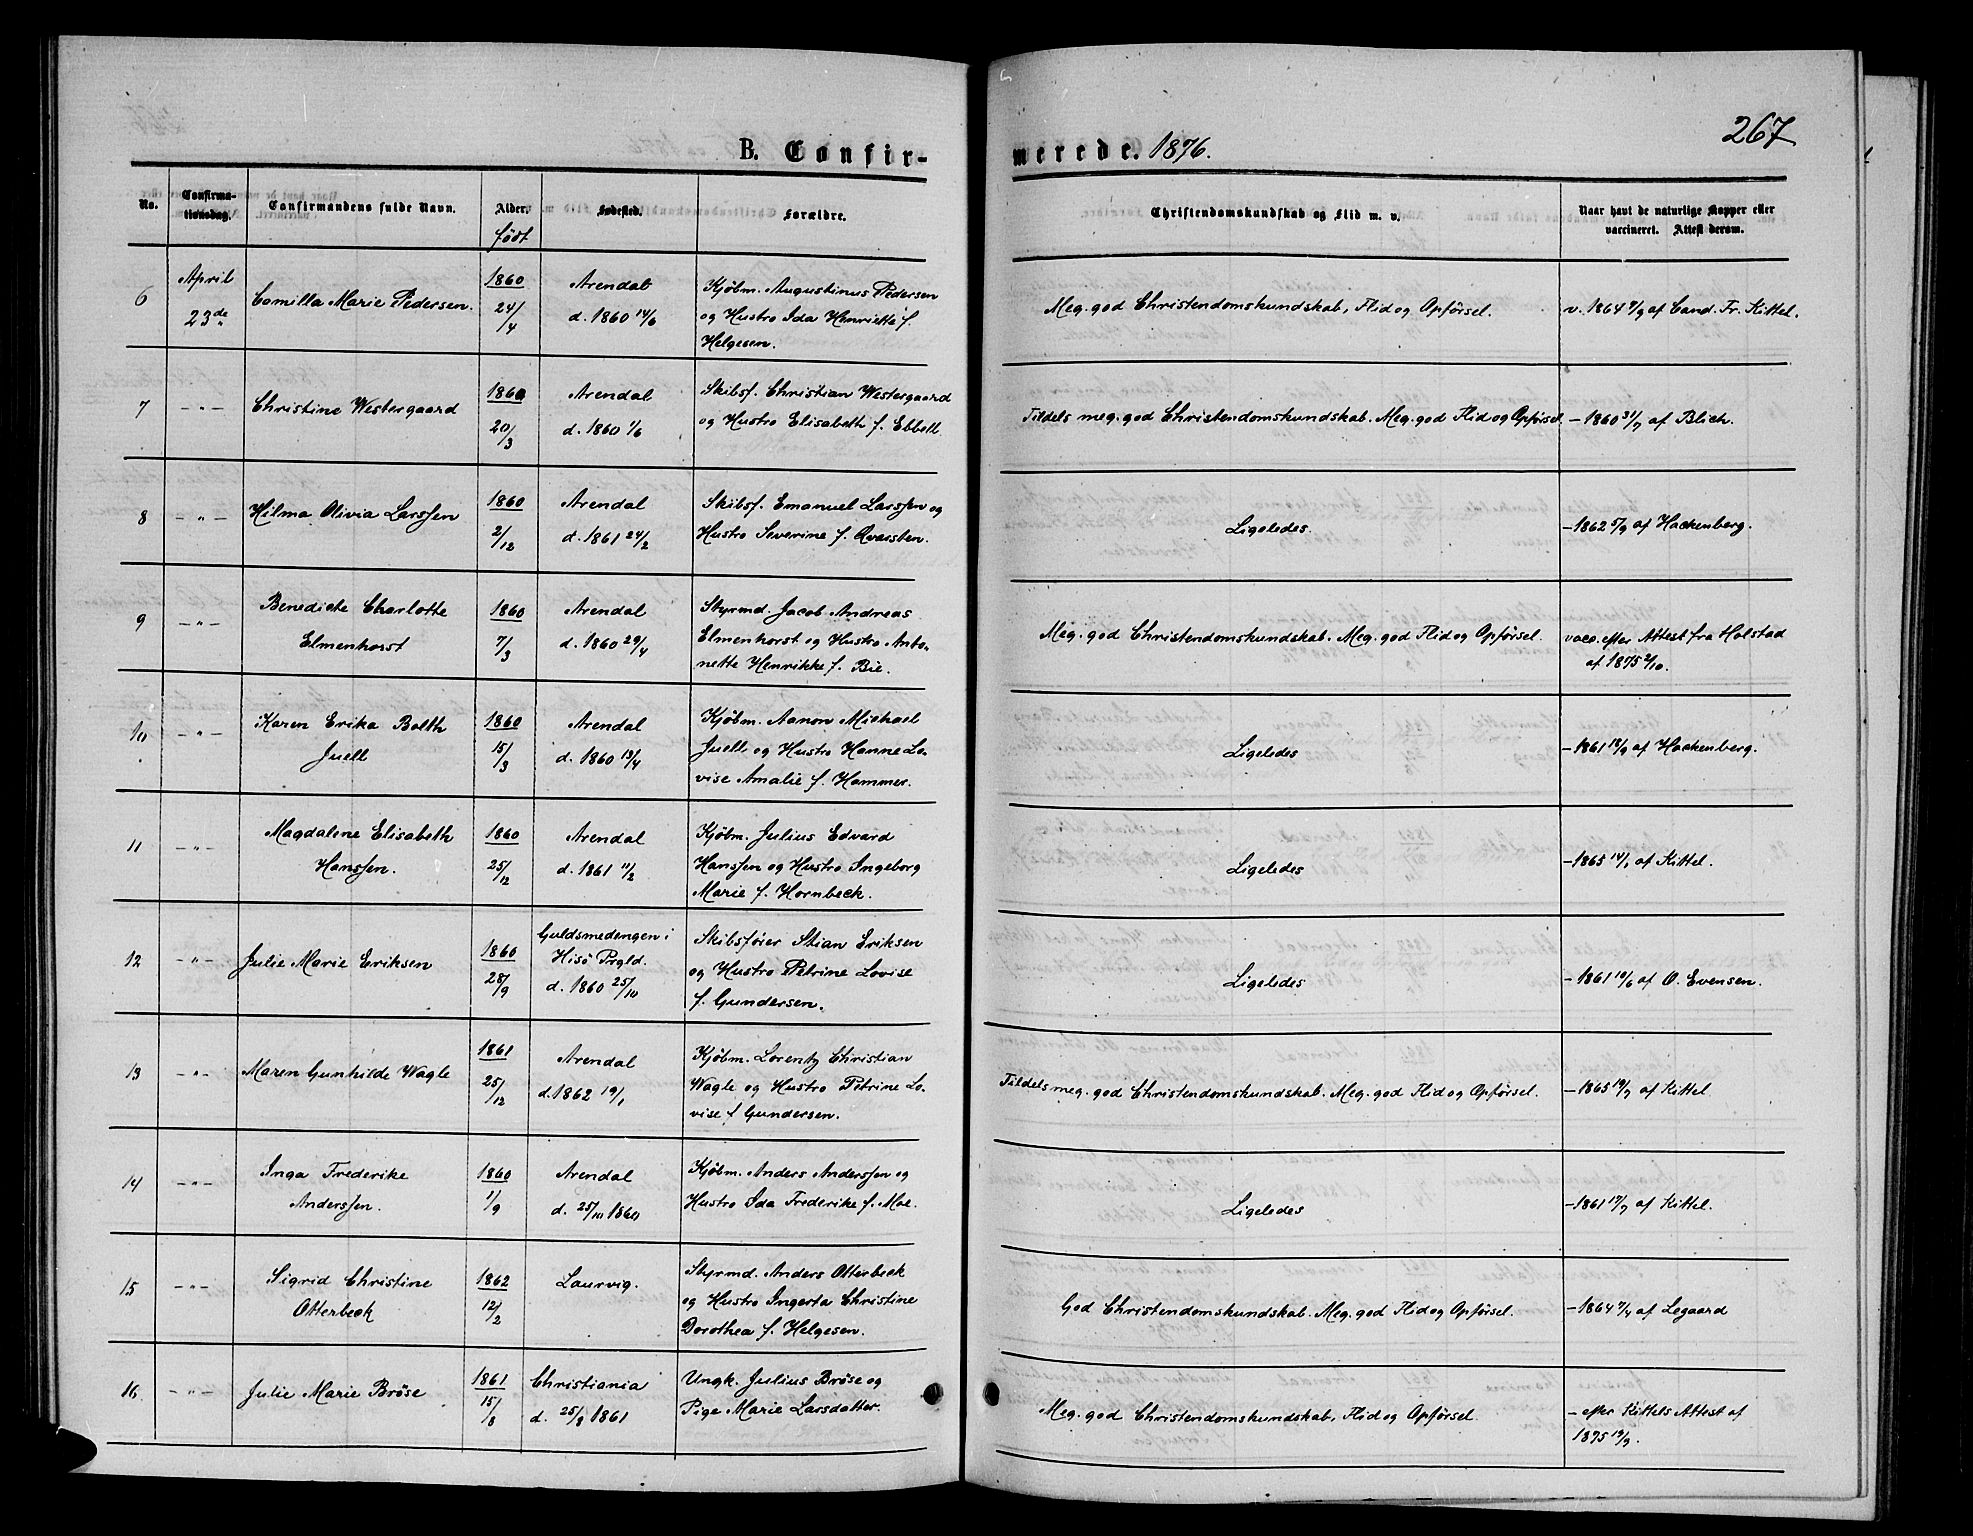 267
B. Confir-
merede. 1876.
No.
Confirma-
tionsdag.
Confirmandens fulde Navn.
Alder.
født
Fødested.
Forældre.
Christendomskundskab og Flid m. v.
Naar havt de naturlige Kopper eller
vaccineret. Attest derom.
6
April
23de
Camilla Marie Pedersen.
1860
24/4
Arendal
d. 1860 14/6
Kjøbm. Augustinus Pedersen
og Hustro Ida Henriette f.
Helgesen.
Meg. god Christendomskundskab, Flid og Opførsel.
v. 1864 9/9 af Cand. Fr. Kittel.
7
-"-
Christine Westergaard
1860
20/3
Arendal
d. 1860 1/6
Skibsf. Christian Westergaard
og Hustro Elisabeth f. Ebbell
Tildels meg. god Christendomskundskab. Meg. god Flid og Opførsel.
- 1860 31/7 af Blich.
8
-"-
Hilma Olivia Larssen
1860
2/12
Arendal
d. 1861 24/2
Skibsf. Emanuel Larssen og
Hustro Severine f. Qvarsten.
Ligeledes.
- 1862 5/9 af Hackenberg.
9
-"-
Benedicte Charlotte
Elmenhorst
1860
7/3
Arendal
d. 1860 29/4
Styrmd. Jacob Andreas
Elmenhorst og Hustro Anto-
nette Henrikke f. Bie.
Meg. god Christendomskundskab. Meg. god Flid og Opførsel.
vacc. efter Attest fra Holstad
af 1875 2/10.
10
-"-
Karen Erika Bolth
Juell
1860
15/3
Arendal
d. 1860 13/4
Kjøbm. Aanon Michael
Juell, og Hustro Hanne Lo-
vise Amalie f. Hammer.
Ligeledes
- 1861 18/9 af Hackenberg.
11
-"-
Magdalene Elisabeth
Hanssen.
1860
25/12
Arendal
d. 1861 11/2
Kjøbm. Julius Edvard
Hanssen og Hustro Ingeborg
Marie f. Hornbeck.
Ligeledes
- 1865 14/7 af Kittel.
12
-"-
Julie Marie Eriksen
1860
28/9
Guldsmedengen i
Hisø Prgld.
d. 1860 25/10
Skibsfører Stian Eriksen
og Hustro Petrine Lovise
f. Gundersen.
Ligeledes
- 1861 19/6 af O. Evensen.
13
-"-
Maren Gunhilde Wagle
1861
25/12
Arendal
d. 1862 19/1
Kjøbm. Lorentz Christian
Wagle og Hustro Petrine Lo-
vise f. Gundersen.
Tildels meg. god Christendomskundskab. Meg. god Flid og Opførsel.
- 1865 19/7 af Kittel
14
-"-
Inga Frederike
Anderssen.
1860
1/9
Arendal
d. 25/10 1860
Kjøbm. Anders Anderssen og
Hustro Ida Frederike f. Moe.
Ligeledes
- 1861 17/7 af Kittel.
15
-"-
Sigrid Christine
Otterbeck
1862
12/2
Laurvig.
Styrmd. Anders Otterbeck
og Hustro Ingerta Christine
Dorothea f. Helgesen.
God Christendomskundskab. Meg. god Flid og Opførsel.
- 1864 7/4 af Legaard
16
-"-
Julie Marie Brøse
1861
15/8
Christiania
d. 25/9 1861
Ungk. Julius Brøse og
Pige Marie Larsdatter.
Meg. god Christendomskundskab, Flid og Opførsel.
- efter Kittels Attest af
1875 19/9.